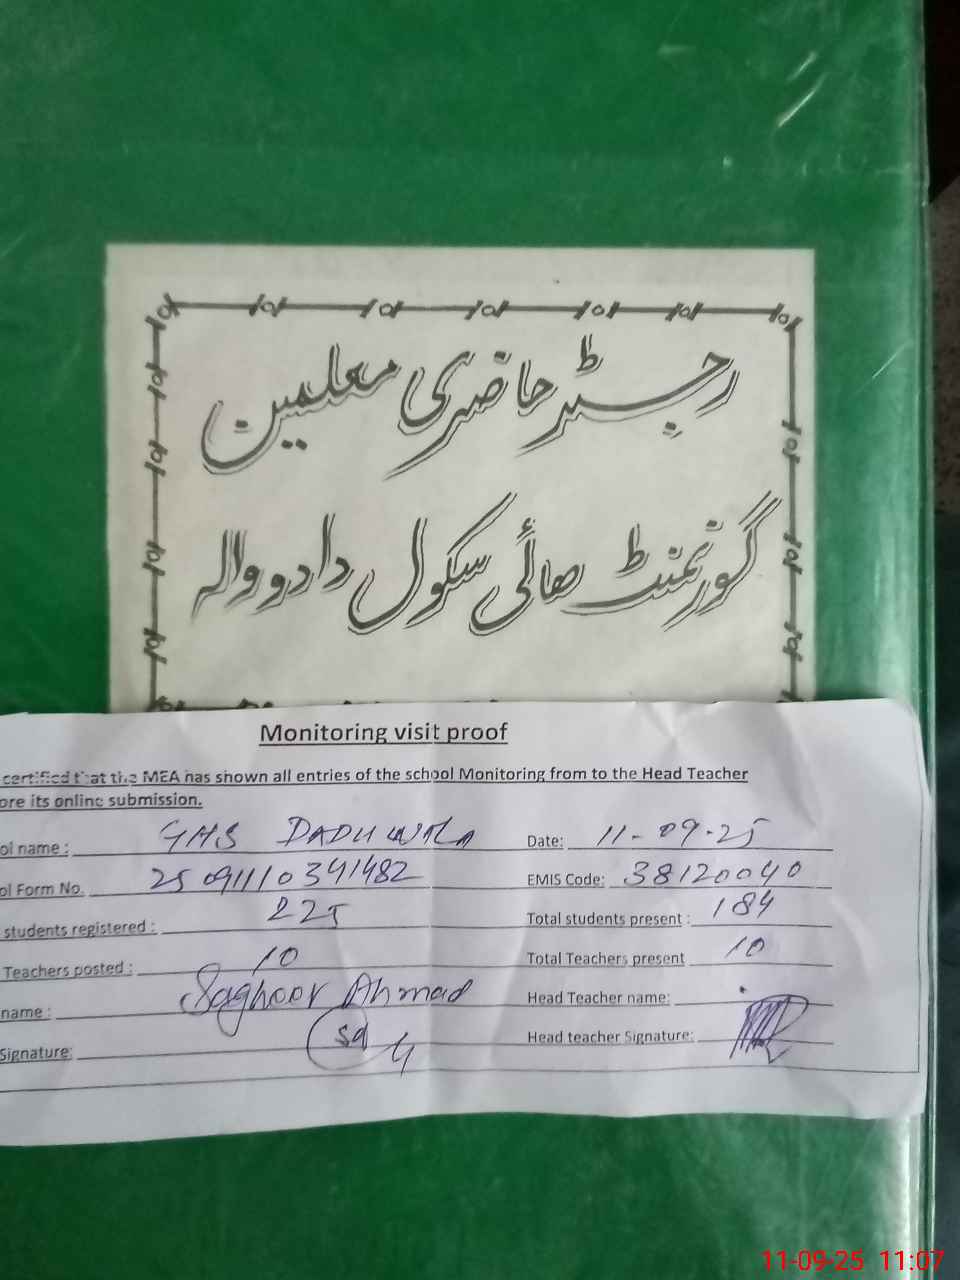 رجسٹر حاضری معلمین
گورنمنٹ ھائی سکول دادو والہ
Monitoring visit proof
certified that the MEA has shown all entries of the school Monitoring from to the Head Teacher
ore its online submission.
ol name : GHS DADUWALA Date: 11-09-25
ol Form No. 25091110341482 EMIS Code: 38120040
students registered : 225 Total students present : 184
Teachers posted : 10 Total Teachers present 10
name : Saghoor Ahmad Head Teacher name:
Signature: Head teacher Signature:
11-09-25 11:07